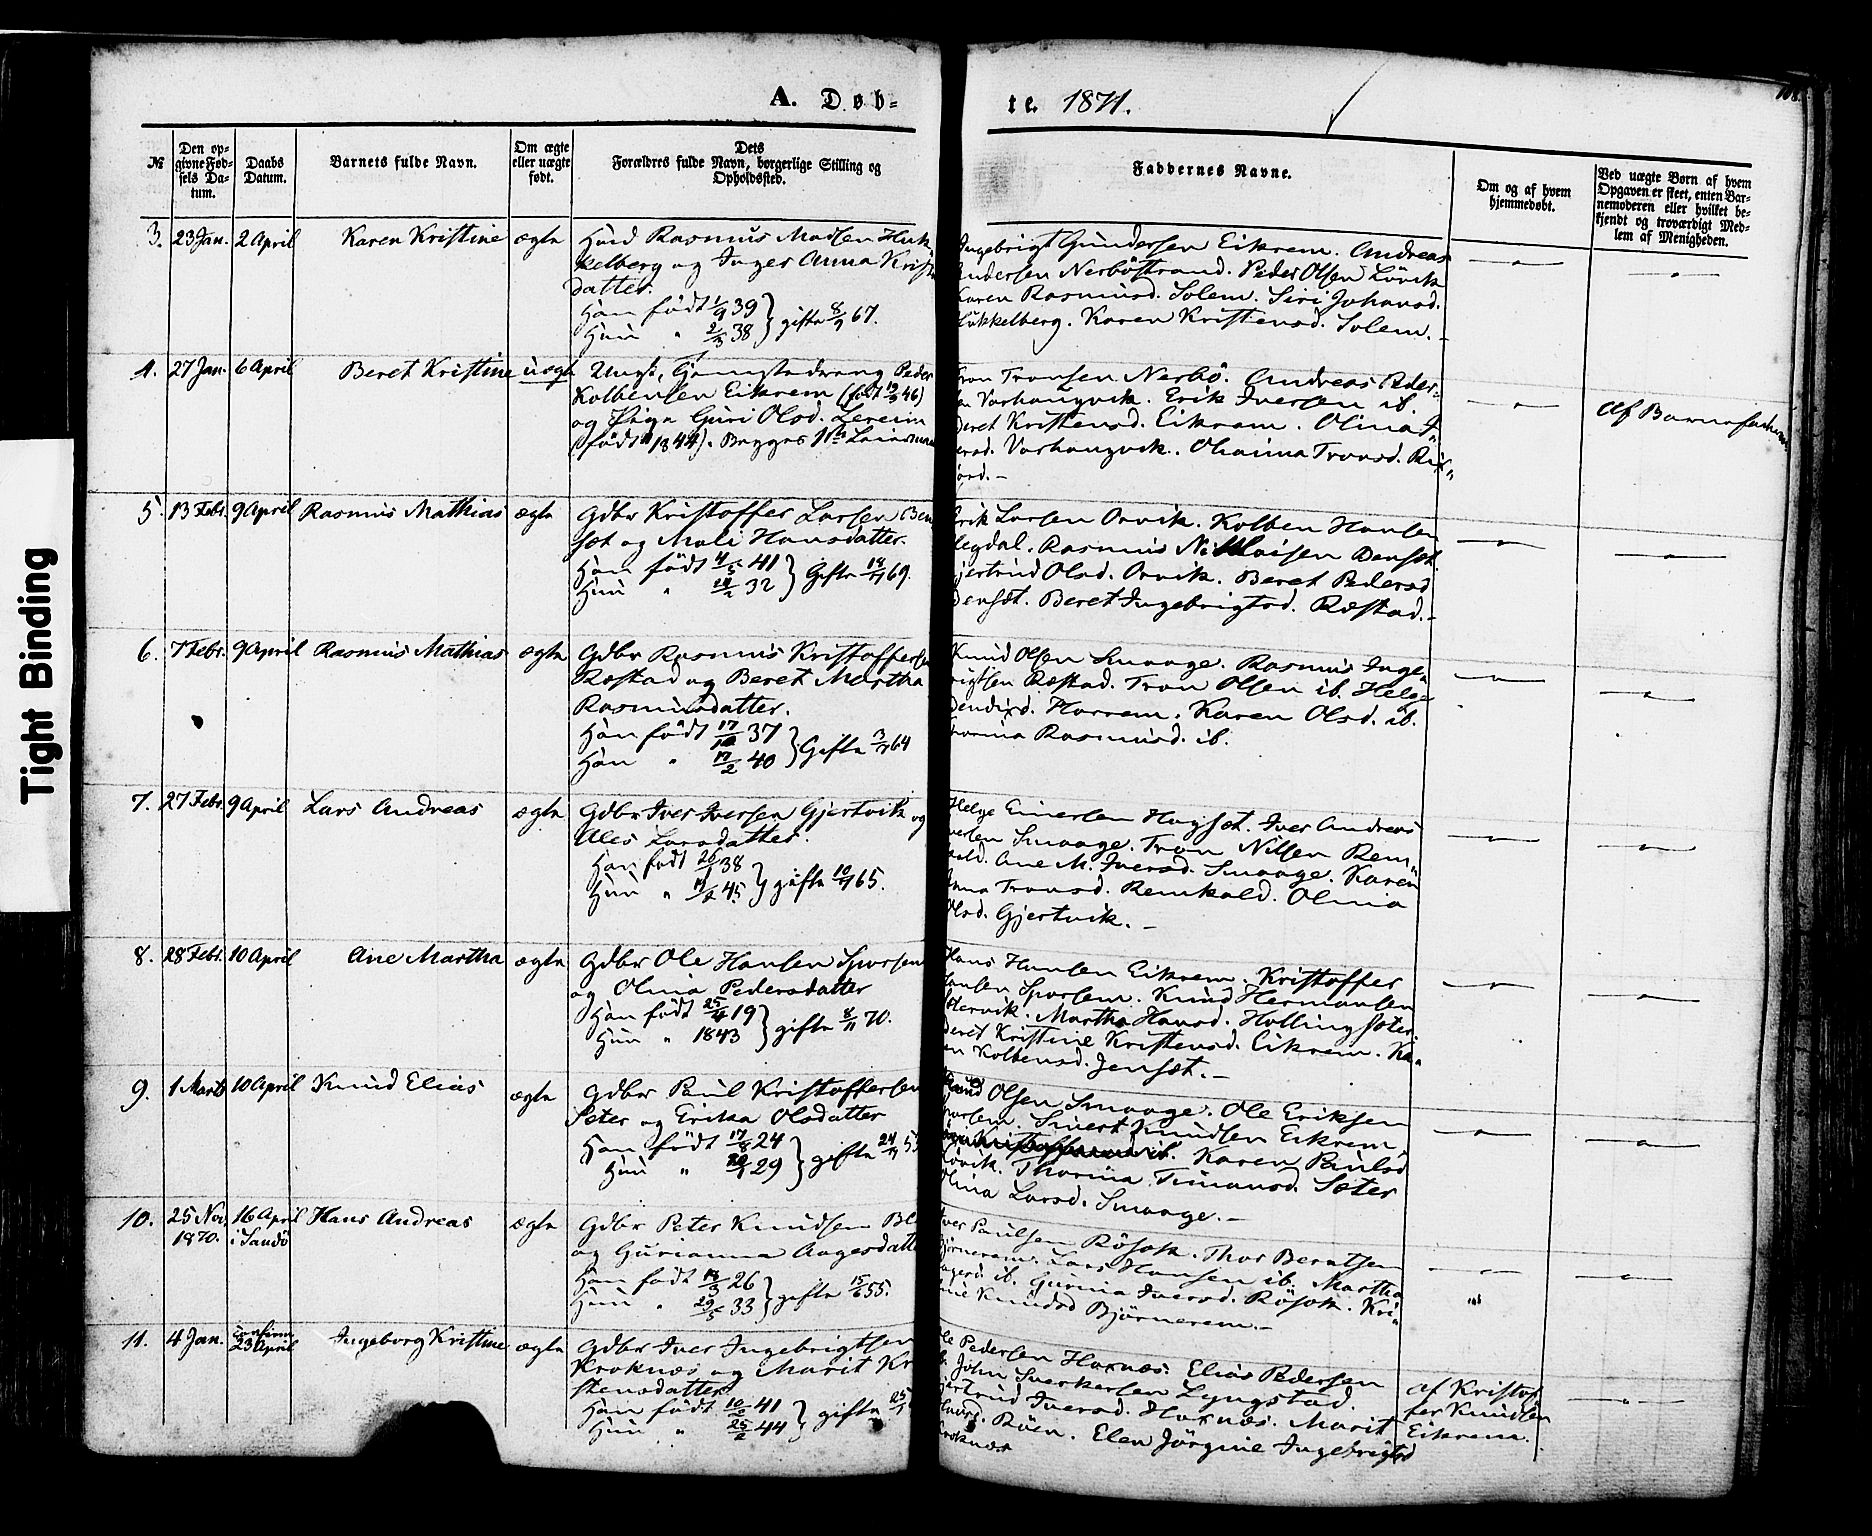 108.
A. Døb-
te. 1871.
№
Den op-
givne Fød-
sels Da-
tum.
Daabs
Datum.
Barnets fulde Navn.
Om ægte
eller uægte
født.
Dets
Forældres fulde Navn, borgerlige Stilling og
Opholdssted.
Faddernes Navne.
Om og af hvem
hjemmedøbt.
Ved uægte Børn af hvem
Opgaven er skeet, enten Bar-
nemoderen eller hvilket be-
kjendt og troværdigt Med-
lem af Menigheden.
3. 23 Jan. 2 April Karen Kristine ægte
Rasmus Madsen Huk
kelberg og Inger Anna Krist
datter.
Han født 1/9 39
Hun " 2/3 38 } gifte 8/9 67.
Ingebrigt Gundersen Eikrem. Andreas
Andersen Nerböstrand. Peder Olsen Lövik
Karen Rasmusd. Solem. Siri Johansd.
Hukkelberg. Karen Kristensd. Solem.
4. 27 Jan. 6 April Beret Kristine uægte
Ungk, Peder
Kolbensen Eikrem (født 46)
og Pige Guri Olsd. Lereim
(født 1844). Begges 1ste Leiermaal
Tron Tronsen Nerbö. Andreas Peder-
sen Varhaugvik. Erik Iversen ib.
Beret Kristensd. Eikrem. Olina
Varhaugvik. Tronsd.
Af Barnefaderen
5. 13 Febr. 9 April Rasmus Mathias ægte
Gdbr Kristoffer Larsen Ben
set og Mali Hansdatter.
Han født 41
Hun " 32 } Gifte 69.
Erik Larsen Orvik. Kolben Hansen
Legdal. Rasmus Nikolaisen Denset
Gjertrud Olsd. Orvik. Beret Pedersd
Denset. Beret Ingebrigtsd. Ræstad.
6. 7 Febr. 9 April Rasmus Mathias ægte
Gdbr Rasmus Kristoffersen
Ræstad og Beret Martha
Rasmusdatter.
Han født 17/10 37
Han " 17/2 40 } Gifte 64
Knud Olsen Smaage. Rasmus Inge-
brigtsen Ræstad. Tron Olsen ib. Helge
Harrem. Karen Olsd. ib.
Rasmusd. ib.
7. 27 Febr. 9 April Lars Andreas ægte
Gdbr Iver Iversen Gjertvik og
Ales Larsdatter.
Han født 26/1 38
Hun " 45. } gifte 65.
Helge Einersen Hagset. Iver Andreas
Iversen Smaage. Tron Nilsen Rem-
kald. Ane M. Iversd. Smaage. Karen
Anna Tronsd. Remkald. Olina
Olsd. Gjertvik.
8. 28 Febr. 10 April Ane Martha ægte
Gdbr Ole Hansen Sporsem
og Olina Pedersdatter
Han født 25/4 19
Hun " 1843 } gifte 8/11 70.
Hans Hansen Eikrem. Kristoffer
Hansen Sporsem. Knud Hermansen
Martha Hansd. Hollingsæter
Beret Kristine Kristensd. Eikrem. Ka-
ren Kolbensd. Jenset.
9. 1 Marts 10 April Knud Elias ægte
Gdbr Paul Kristoffersen
Sæter og Erika Olsdatter
Han født 17/8 24
Hun " 29 } gifte 24
Knud Olsen Smaage. Ole Eriksen
Sporsem. Sivert Knudsen Eikrem,
Karen Paulsd
Lövik. Thorina Timansd. Sæter
Olina Larsd. Smaage.
10. 25 Nov. 1870. 16 April i Sandö Hans Andreas ægte
Gdbr Peter Knudsen
og Gurianna Aagesdatter
Han født 26
Hun " 29/5 33 } gifte 15/6 55.
Iver Paulsen Rösok. Thor Berntsen
Björnerem. Lars Hansen ib. Martha
ib. Gurina Iversd. Rösok. Kri-
stine Knudsd Björnerem.
11. 4 Jan. confirm. 23 April Ingeborg Kristine ægte
Gdbr Iver Ingebrigtsen
Kroknæs og Marit Kri
stensdatter
Han født 10/2 41
Hun " 25/2 44 } gifte 25
Ole Pedersen Harnæs. Elias Pedersen
ib. John Sverkersen Lyngstad.
Gjertrud Iversd. Harnæs. Marit
Röen. Elen Jörgine Ingebrigtsd
Kroknæs
af Kristof
fer Knudsen
Eikrem.
Tight Binding